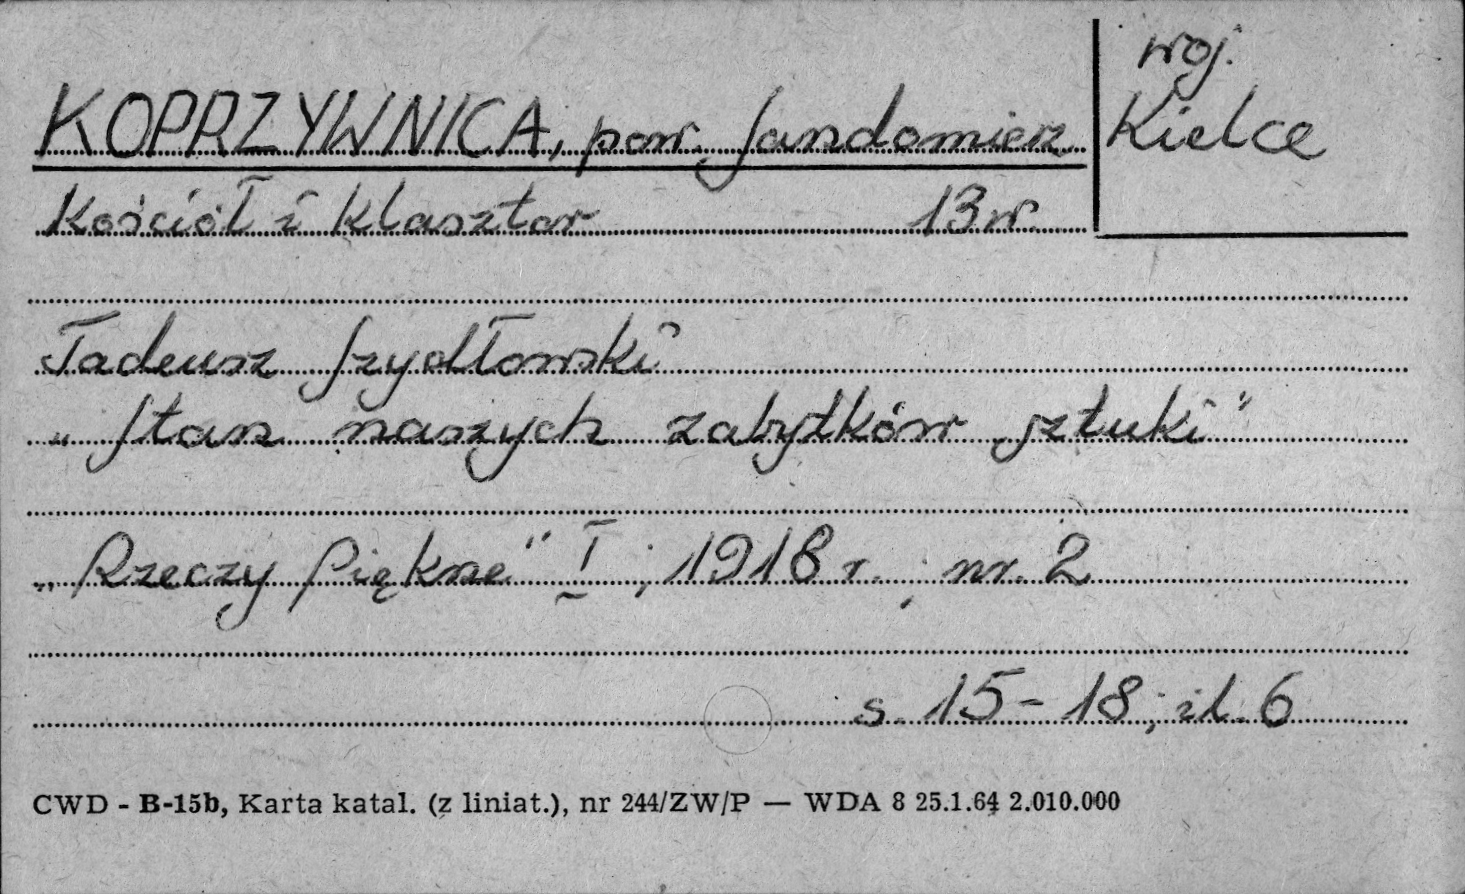 KOPRZYWNICA, pow. Sandomierz
woj.
Kielce
Kościół i klasztor 13 w.
Tadeusz Szydłowski
„Stan naszych zabytków sztuki"
„Rzeczy Piękne" I ; 1918 r. ; nr. 2
s. 15-18; il. 6
CWD - B-15b, Karta katal. (z liniat.), nr 244/ZW/P — WDA 8 25.1.64 2.010.000